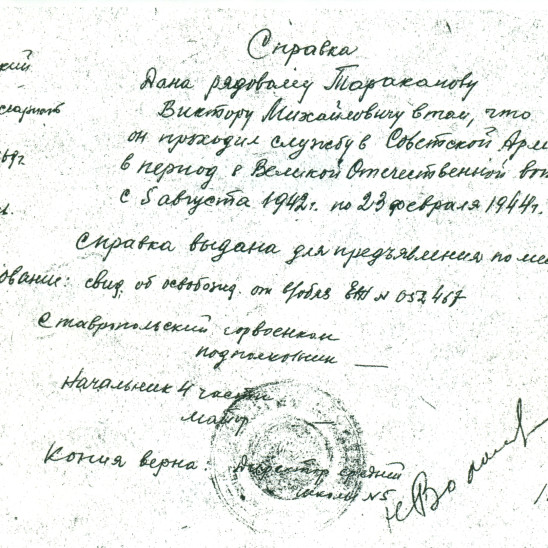 Справка
Дана рядовому Тараканову
Виктору Михайловичу в том, что
он проходил службу в Советской Арм
в период в Великой Отечественной во
с 5 августа 1942г. по 23 февраля 1944г.
Справка выдана для предъявления по ме
ование: свид. об освобожд. от в/обяз ЕЖ N 057467
Ставропольский горвоенком
подполковник —
Начальник 4 части
майор —
Копия верна: Директор средней
школы N5